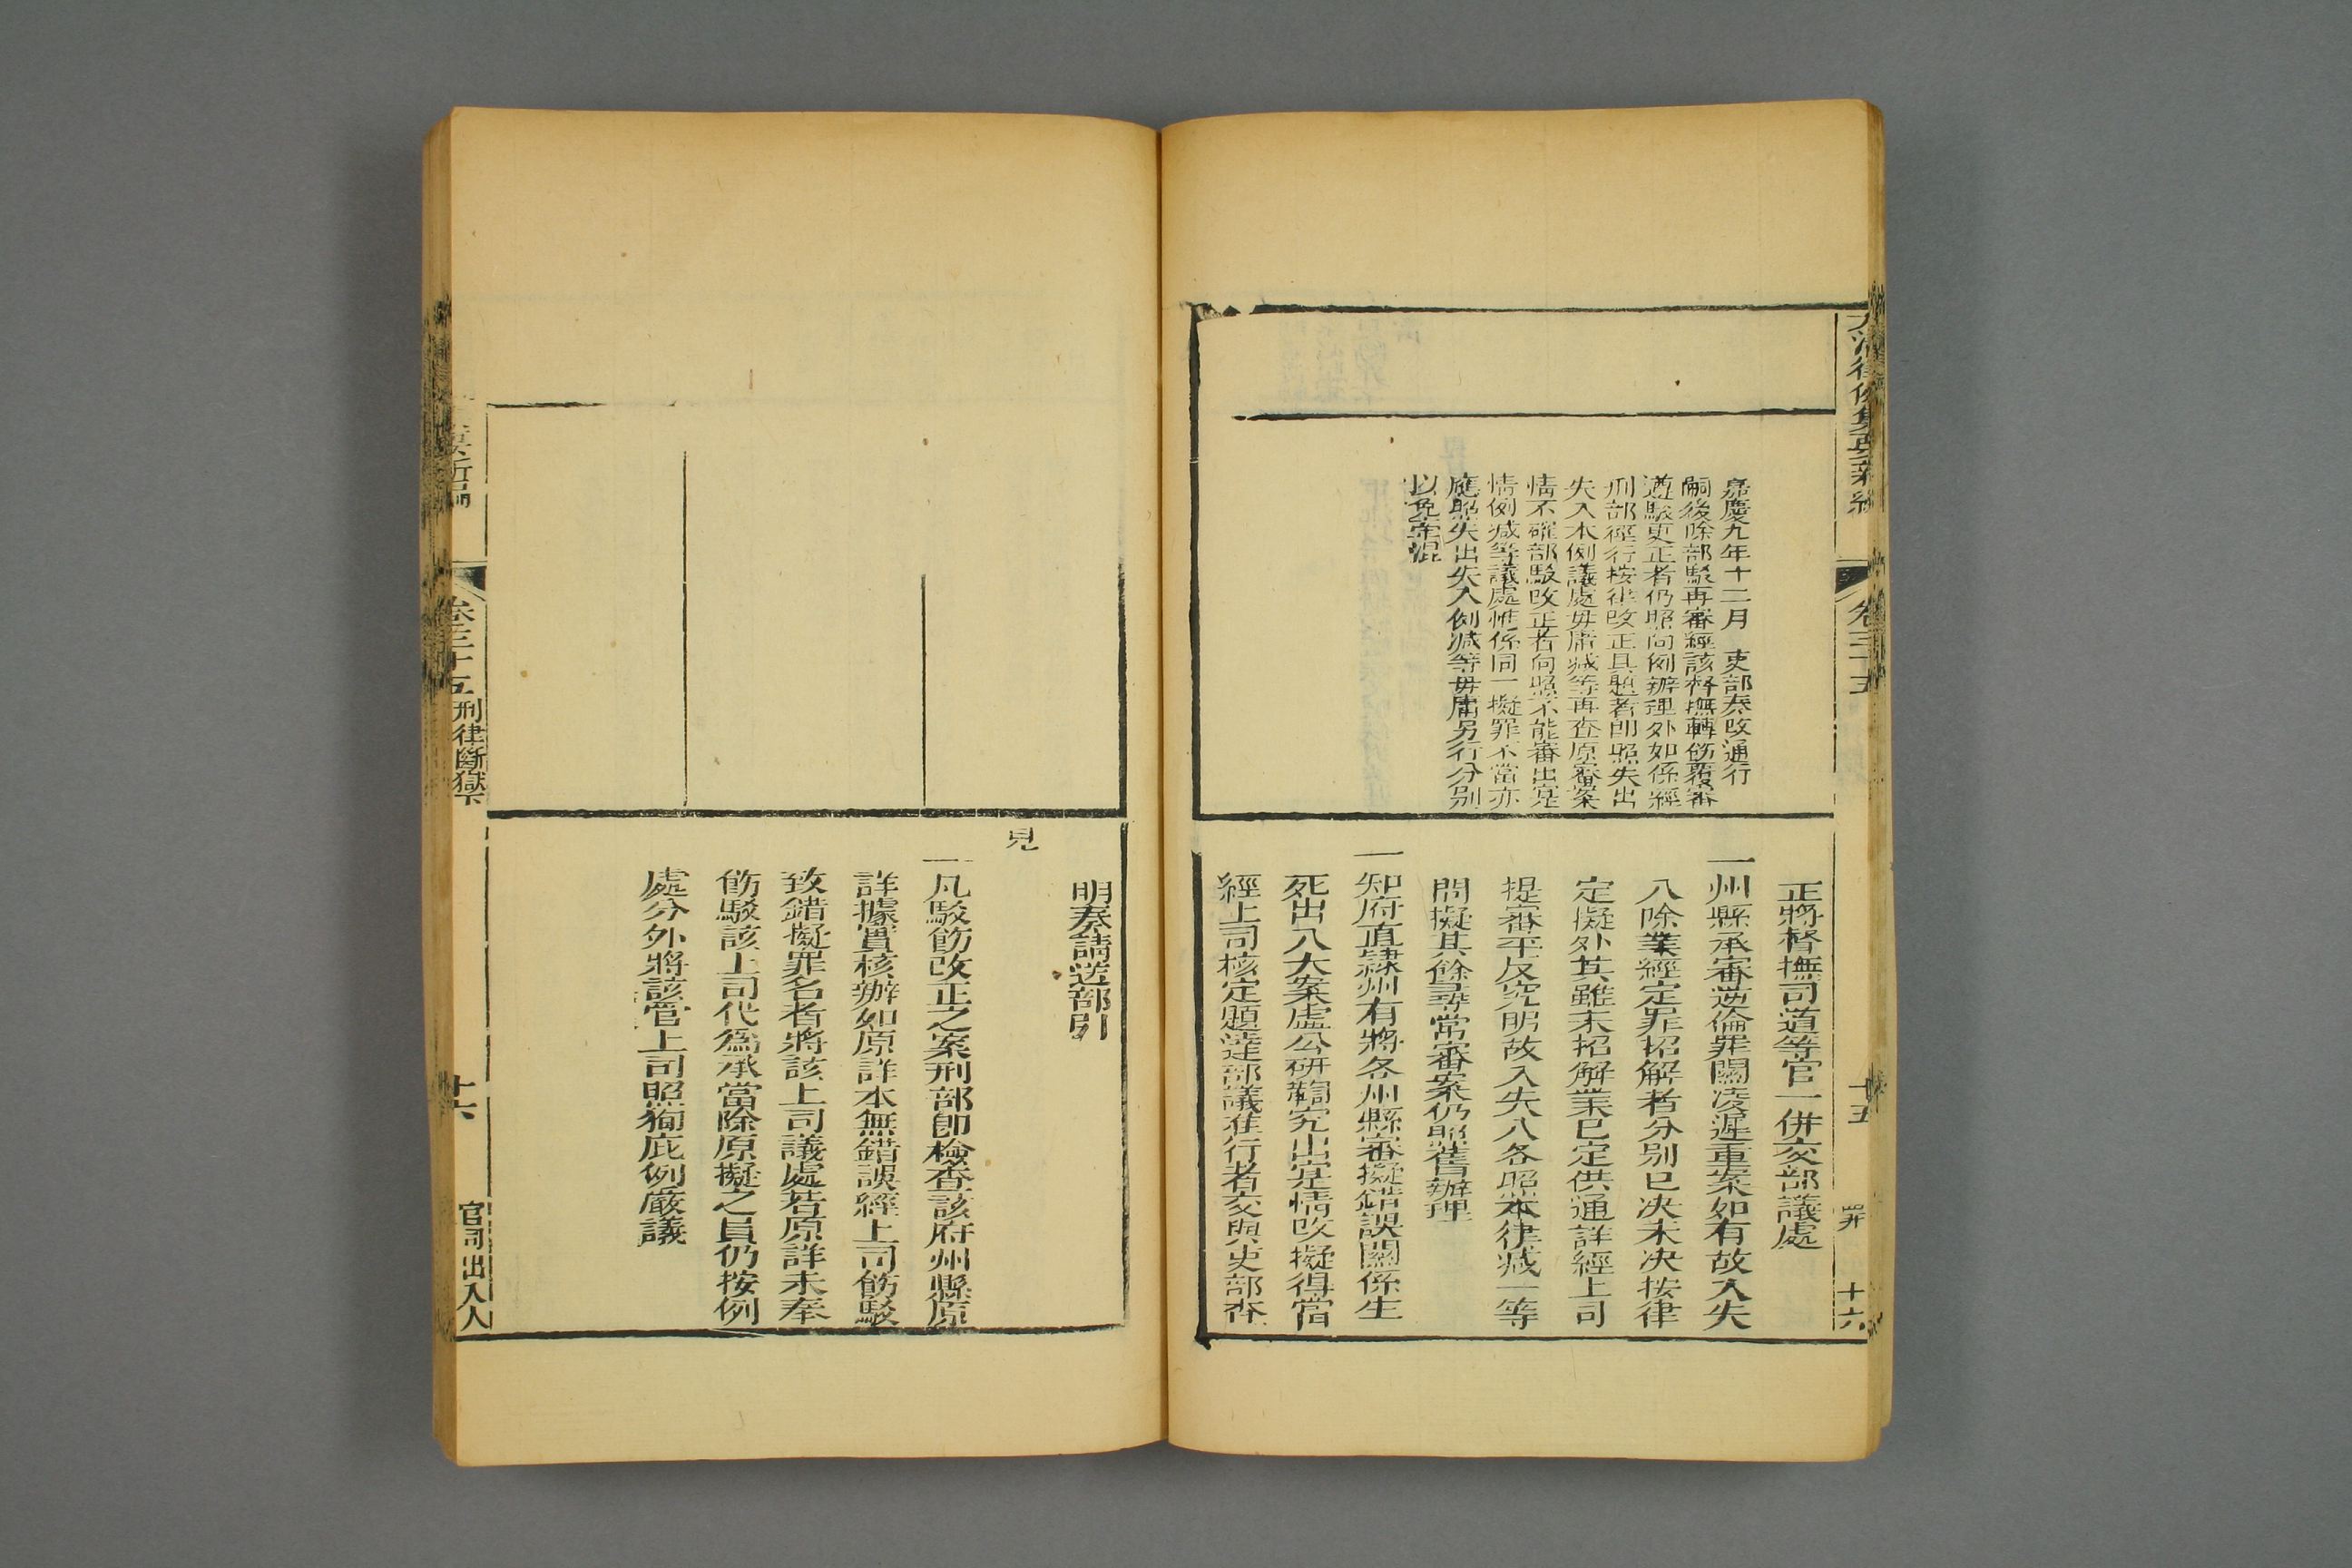 大清律例集要新編
卷三十五
十五
罪
十六
嘉慶九年十二月　吏部奏改通行
嗣後除部駁再審經該督撫轉飭覆審
遵駁更正者仍照向例辦理外如係經
刑部徑行按律改正具題者即照失出
失入本例議處毋庸减等再查原審案
情不確部駁改正者向照不能審出寔
情例减等議處惟係同一擬罪不當亦
應照失出失入例減等毋庸另行分别
以免牽混
正將督撫司道等官一併交部議處
一州縣承審逆倫罪關凌遲重案如有故入失
入除業經定罪招解者分别已决未决按律
定擬外其雖未招解業已定供通詳經上司
提審平反究明故入失入各照本律减一等
問擬其餘尋常審案仍照舊辦理
一知府直隸州有將各州縣審擬錯誤關係生
死出入大案虛公研鞫究出寔情改擬得當
經上司核定題達部議准行者交與吏部查
明奏請送部引
見
一凡駁飭改正之案刑部卽檢查該府州縣原
詳據實核辦如原詳本無錯誤經上司飭駁
致錯擬罪名者將該上司議處若原詳未奉
飭駁該上司代爲承當除原擬之員仍按例
處分外將該管上司照狥庇例嚴議
要新編
卷三十五
刑律斷獄下
十六
官司出入人